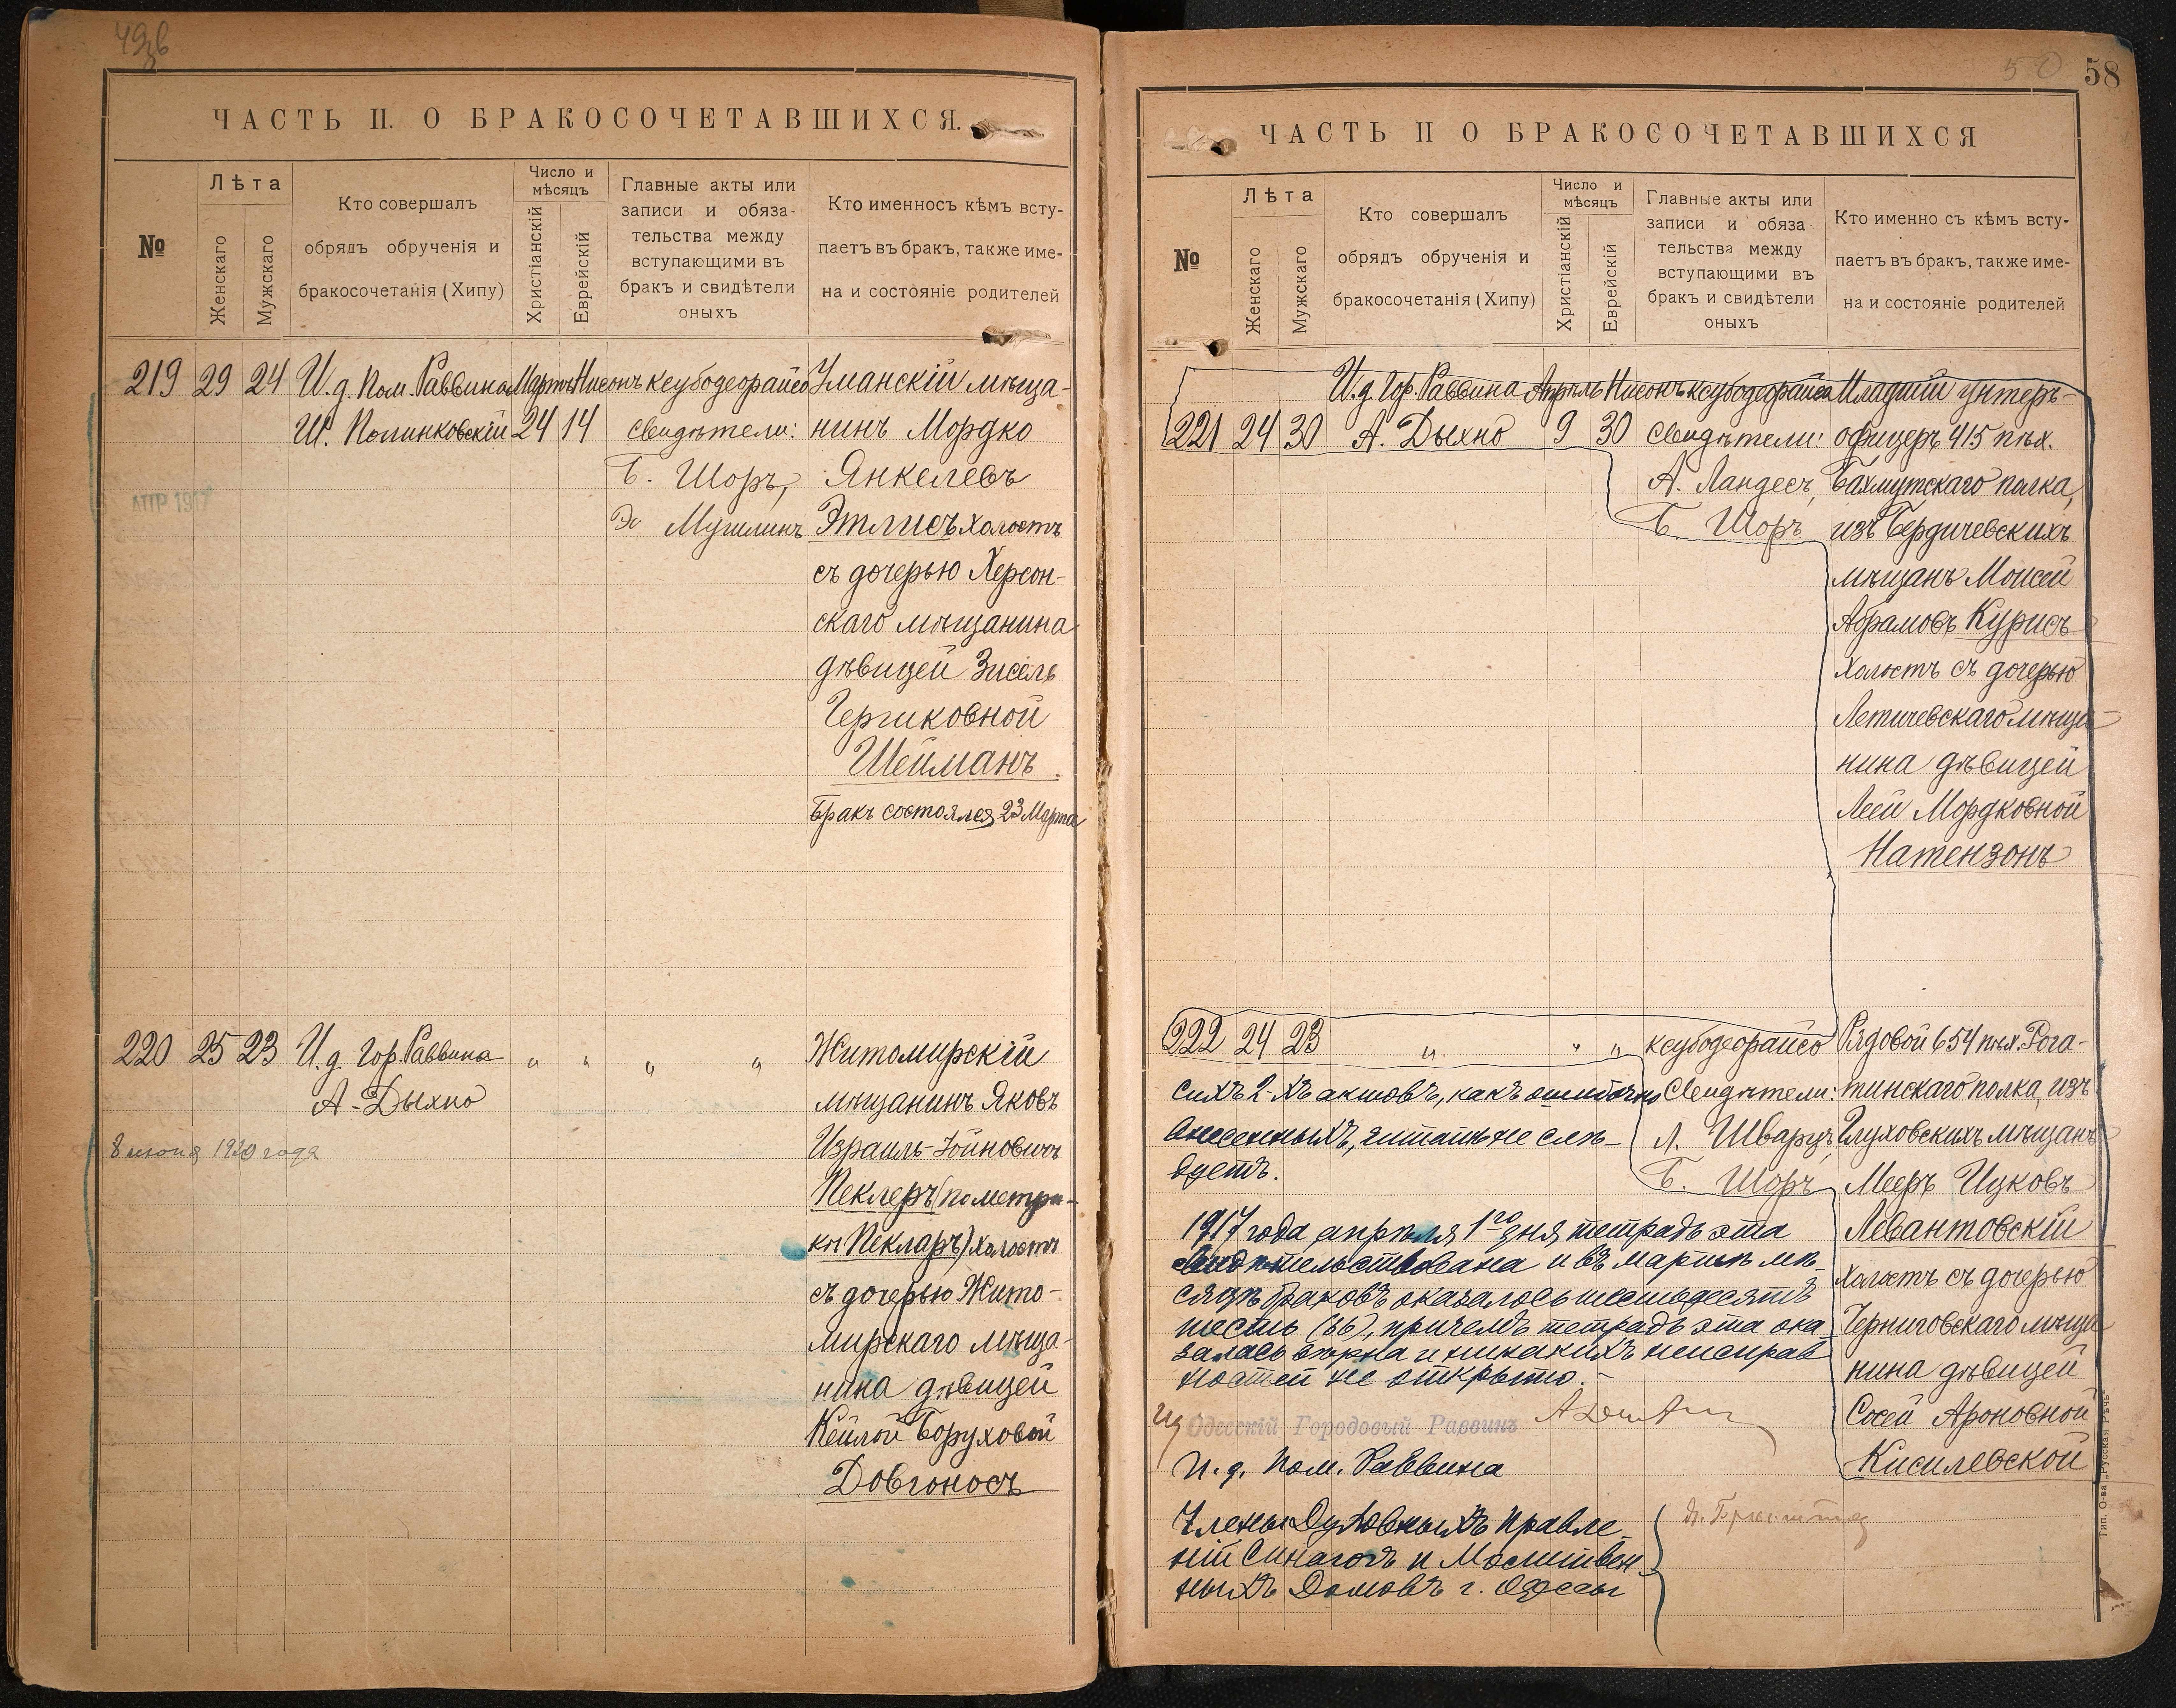 ЧАСТЬ II. О БРАКОСОЧЕТАВШИХСЯ.
№
Лѣта
Женскаго
Мужскаго
Кто совершалъ
обрядъ обрученія и
бракосочетанія (Хипу)
Число и
мѣсяцъ
Христіанскій
Еврейскій
Главные акты или
записи и обяза-
тельства между
вступающими въ
бракъ и свидѣтели
оныхъ
Кто именносъ кѣмъ всту-
паетъ въ бракъ, также име-
на и состояніе родителей
219 29 24 И.д. Пом. Раввина Мартъ Нисонъ ксубодеорайсо Уманскій мѣща-
Ш. Полинковскій 24 14 свидѣтели: нинъ Мордко
Б. Шоръ, Янкелевъ
Мучникъ Этлисъ холостъ
съ дочерью Херсон-
скаго мѣщанина
дѣвицей Зисель
Гершковной
Шейманъ.
Бракъ состоялся 23 Марта
АПР 1917
220 25 23 И.д. Гор. Раввина " " " " Житомирскій
А. Дыхно мѣщанинъ Яковъ
8 июня 1920 года
Израиль-Іойновичъ
Пеклеръ (по метри-
кѣ Пекларъ) холостъ
съ дочерью Жито-
мирскаго мѣща-
нина дѣвицей
Кейлой Боруховой
Довгоносъ
58
50
ЧАСТЬ II О БРАКОСОЧЕТАВШИХСЯ
№
Лѣта
Женскаго
Мужскаго
Кто совершалъ
обрядъ обрученія и
бракосочетанія (Хипу)
Число и
мѣсяцъ
Христіанскій
Еврейскій
Главные акты или
записи и обяза
тельства между
вступающими въ
бракъ и свидѣтели
оныхъ
Кто именно съ кѣмъ всту-
паетъ въ бракъ, также име-
на и состояніе родителей
И.д. Гор. Раввина Апрѣль Нисонъ ксубодеорайсо Младшій унтеръ-
221 24 30 А. Дыхно 9 30 свидѣтели: офицеръ 415 пѣх.
А. Ландесъ, Бахмутскаго полка,
Б. Шоръ изъ Бердичевскихъ
мѣщанъ Моисей
Абрамовъ Курисъ
холостъ съ дочерью
Летичевскаго мѣща-
нина дѣвицей
Леей Мордковной
Натензонъ
222 24 23 " " " ксубодеорайсо Рядовой 654 пѣх. Рога-
Свидѣтели: тинскаго полка, изъ
Л. Шварцъ, Глуховскихъ мѣщанъ
Б. Шоръ Мееръ Ицковъ
Левантовскій
холостъ съ дочерью
Черниговскаго мѣща
нина дѣвицей
Сосей Ароновной
Кисилевской
Сихъ 2-хъ актовъ, какъ ошибочно
внесенныхъ, читать не слѣ-
дуетъ.
1917 года апрѣля 1го дня тетрадь эта
свидѣтельствована и въ мартѣ мѣ-
сяцѣ браковъ оказалось шестьдесятъ
шесть (66), причемъ тетрадь эта ока-
залась вѣрна и никакихъ неисправ
ностей не открыто.-
Ид Одесскій Городовый Раввинъ
И.д. Пом. Раввина
Члены Духовныхъ Правле-
ній Синагогъ и Молитвен-
ныхъ Домовъ г. Одессы
Тип. О-ва „Русская Рѣчь“